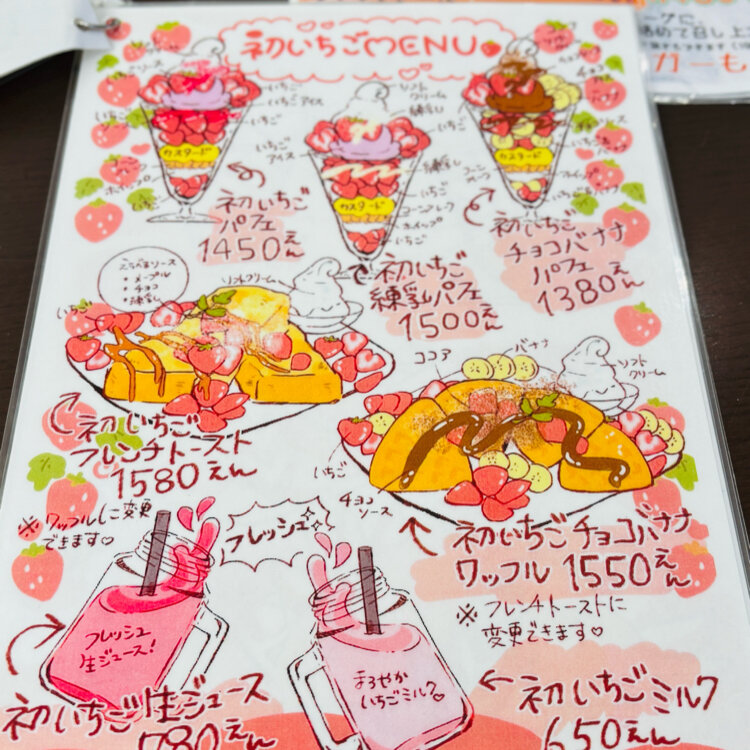 初いちごMENU
いちごソース
いちご
いちごアイス
いちご
カスタード
初いちご
パフェ
1450えん
ソフト
クリーム
練乳
いちご
いちご
アイス
練乳
いちご
コーンフレーク
カスタード
ホイップ
いちご
初いちご
練乳パフェ
1500えん
チョコ
カスタード
初いちご
チョコバナナ
パフェ
1380えん
えらべるソース
・メープル
・チョコ
・練乳
ソフトクリーム
いちご
初いちご
フレンチトースト
1580えん
※ワッフルに変更
できます♡
ココア
バナナ
ソフト
クリーム
いちご
チョコ
ソース
初いちごチョコバナナ
ワッフル 1550えん
※フレンチトーストに
変更できます♡
フレッシュ
フレッシュ
生ジュース!
初いちご生ジュース
780えん
まろやか
いちごミルク♡
初いちごミルク
650えん